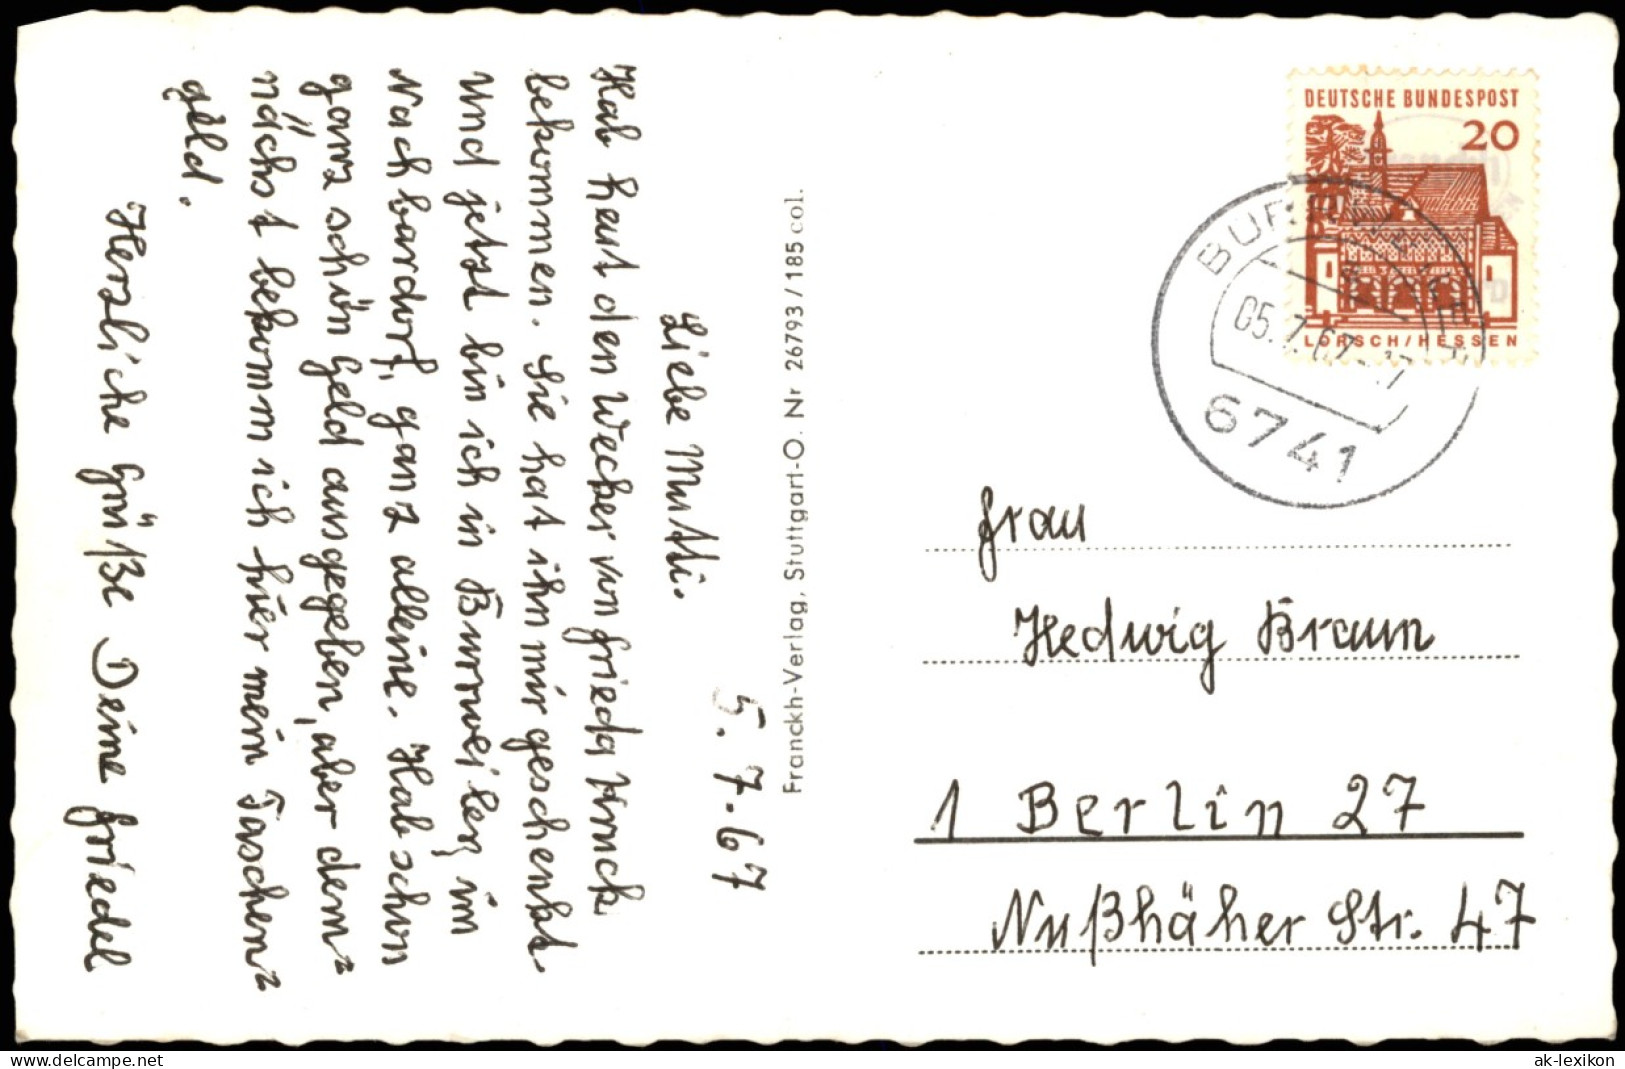 5.7.67
Liebe Mutti.
Hab heut den Wecker von Frieda
bekommen. Sie hat ihn mir geschenkt.
Und jetzt bin ich in Burrweiler, im
Nachbardorf, ganz alleine. Hab schon
ganz schön Geld ausgegeben, aber dem=
nächst bekomm ich hier mein Taschen=
geld.
Herzliche Grüße Deine Friedel
Franckh-Verlag, Stuttgart-O. Nr 26793/185 col.
DEUTSCHE BUNDESPOST
20
LORSCH/HESSEN
BURRWEILER
05.7.67-17
6741
Frau
Hedwig Braun
1 Berlin 27
Nußhäher Str. 47
ak-lexikon
www.delcampe.net